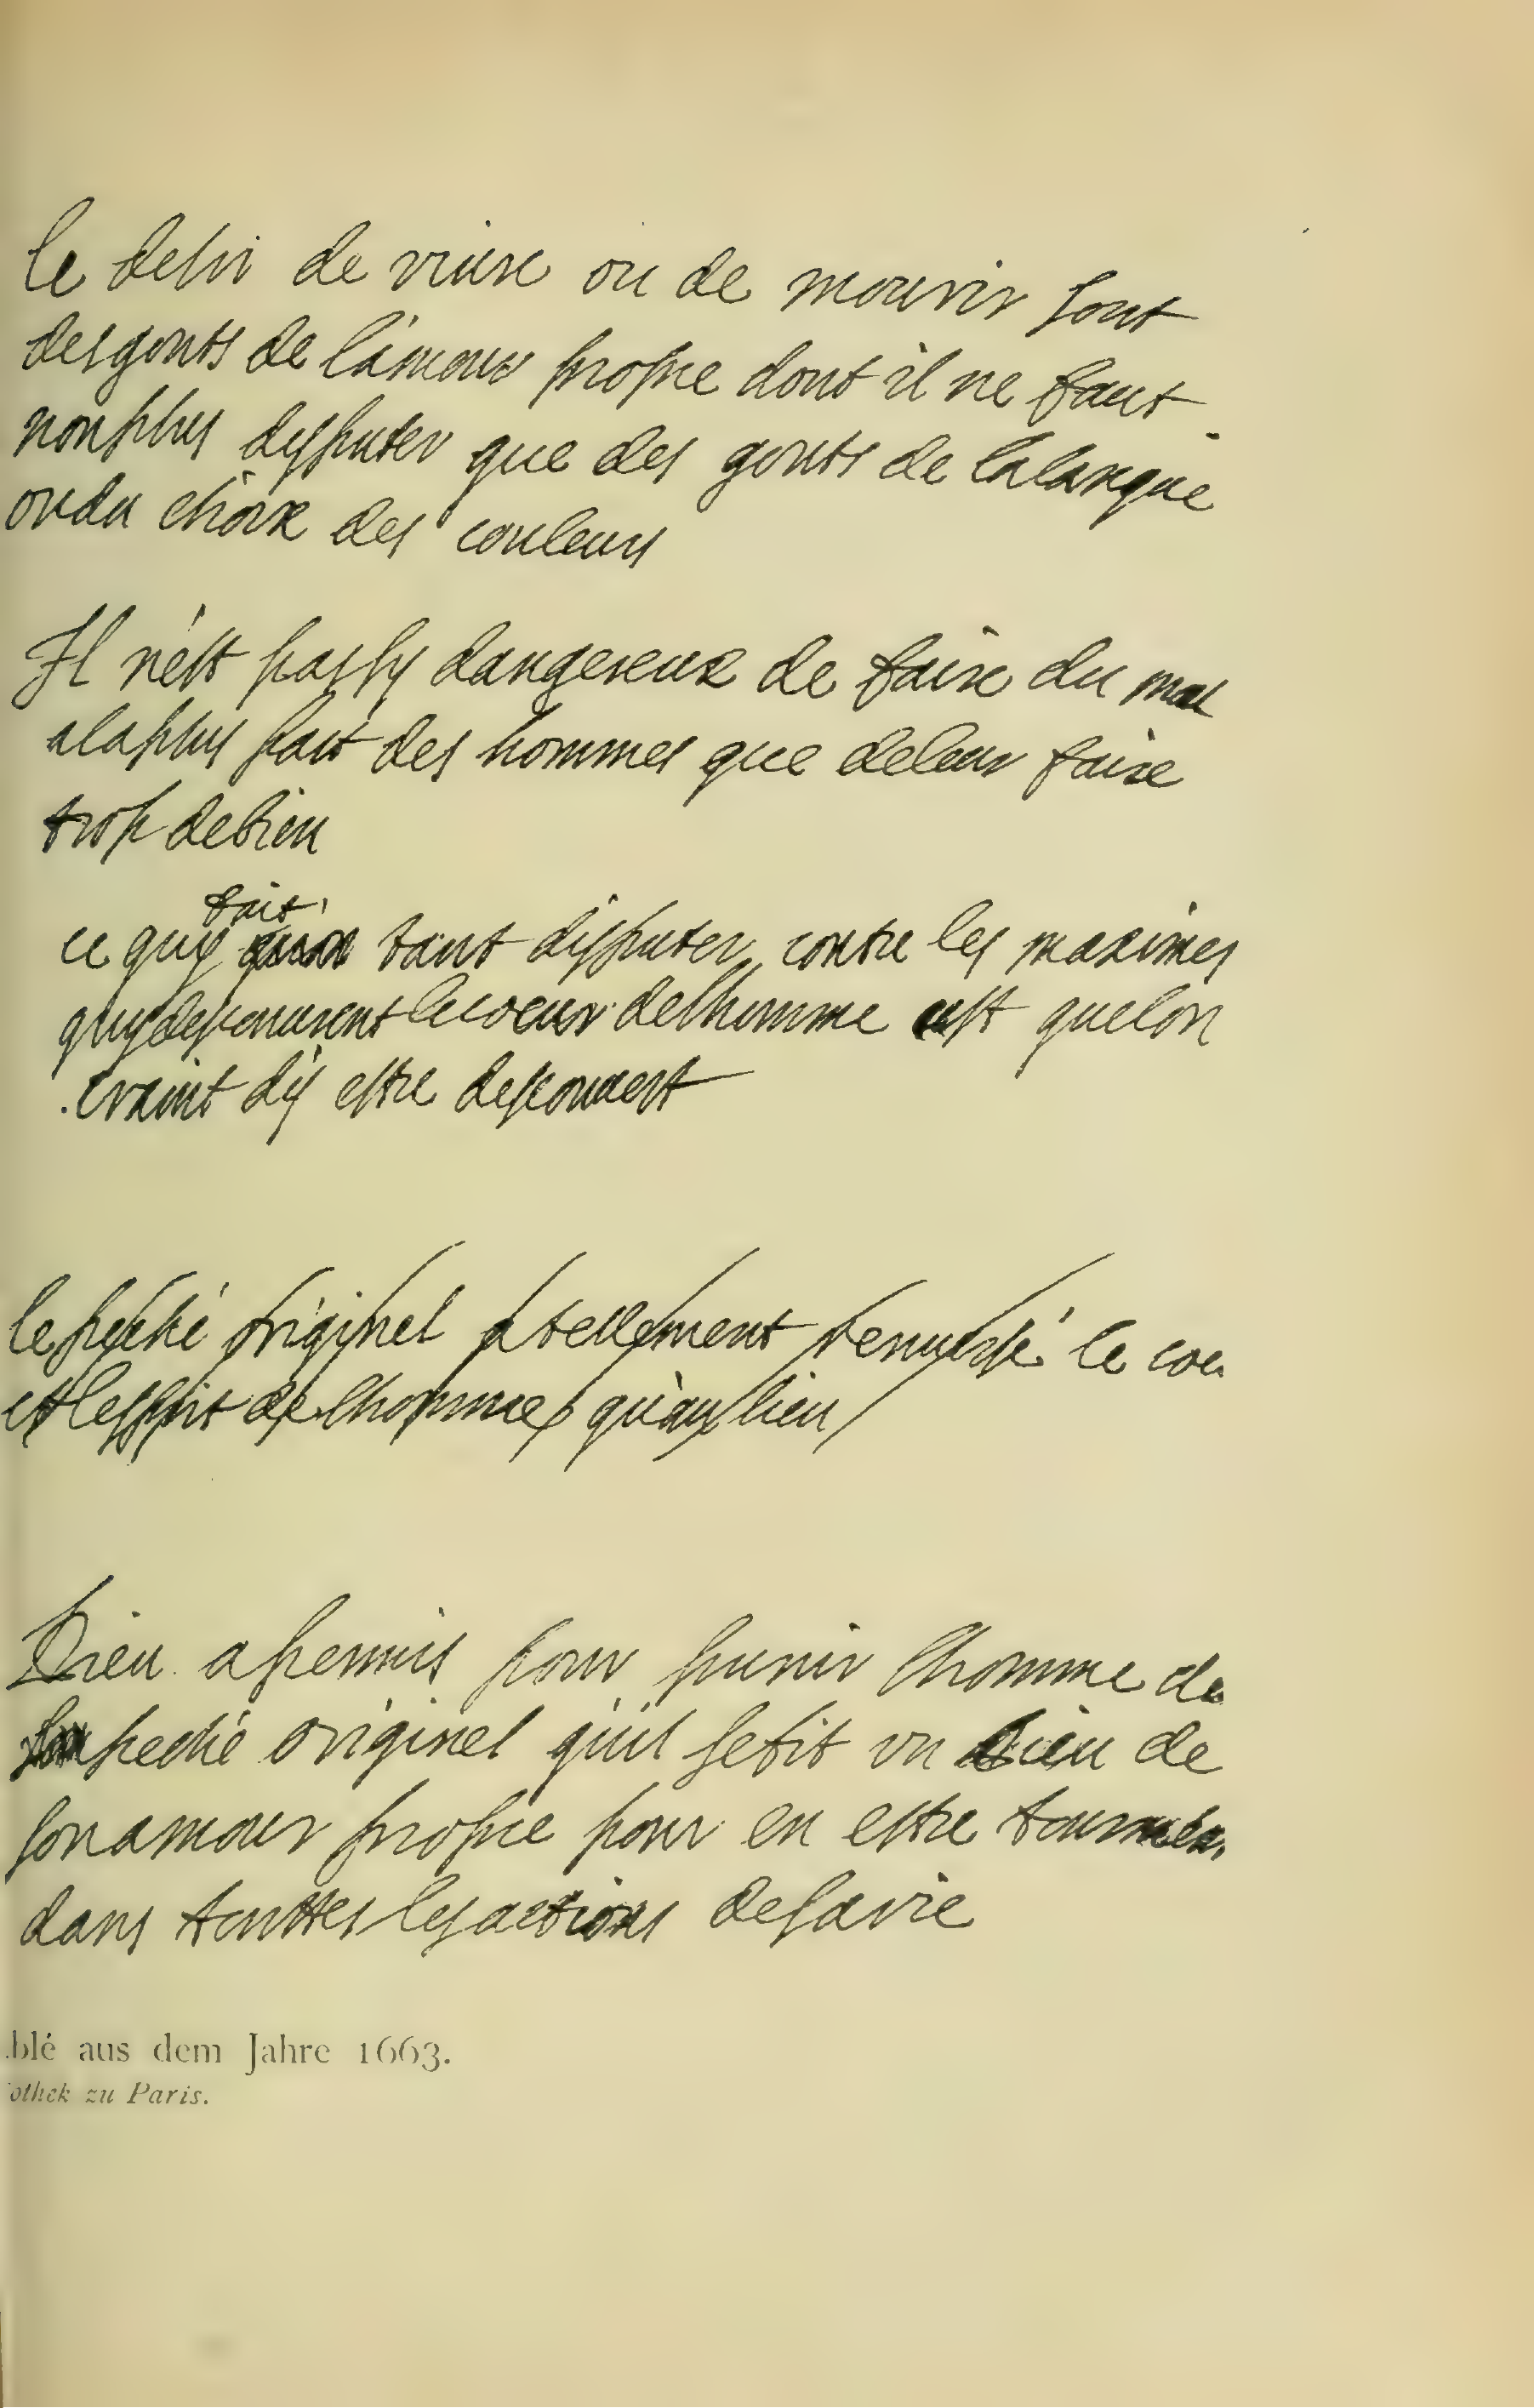 le desir de viure ou de mourir sont
des gouts de l'amour propre dont il ne faut
nonplus disputer que des gouts de lalangue
oudu choix des couleurs
Il n'est passy dangereux de faire du mal
alaplus part des hommes que deleur faire
trop debien
fait
ce quy tant disputer contre les maximes
quydescouurent lecoeur delhomme est quelon
craint d'y estre descouuert
lepeché originel a tellement renuersé le coeu
et lesprit de lhomme qu'au lieu
Dieu apermis pour punir lhomme du
peché originel qu'il sefit vn dieu de
sonamour propre pour en estre tourmen
dans touttes lesactions desavie
blé aus dem Jahre 1663.
othek zu Paris.